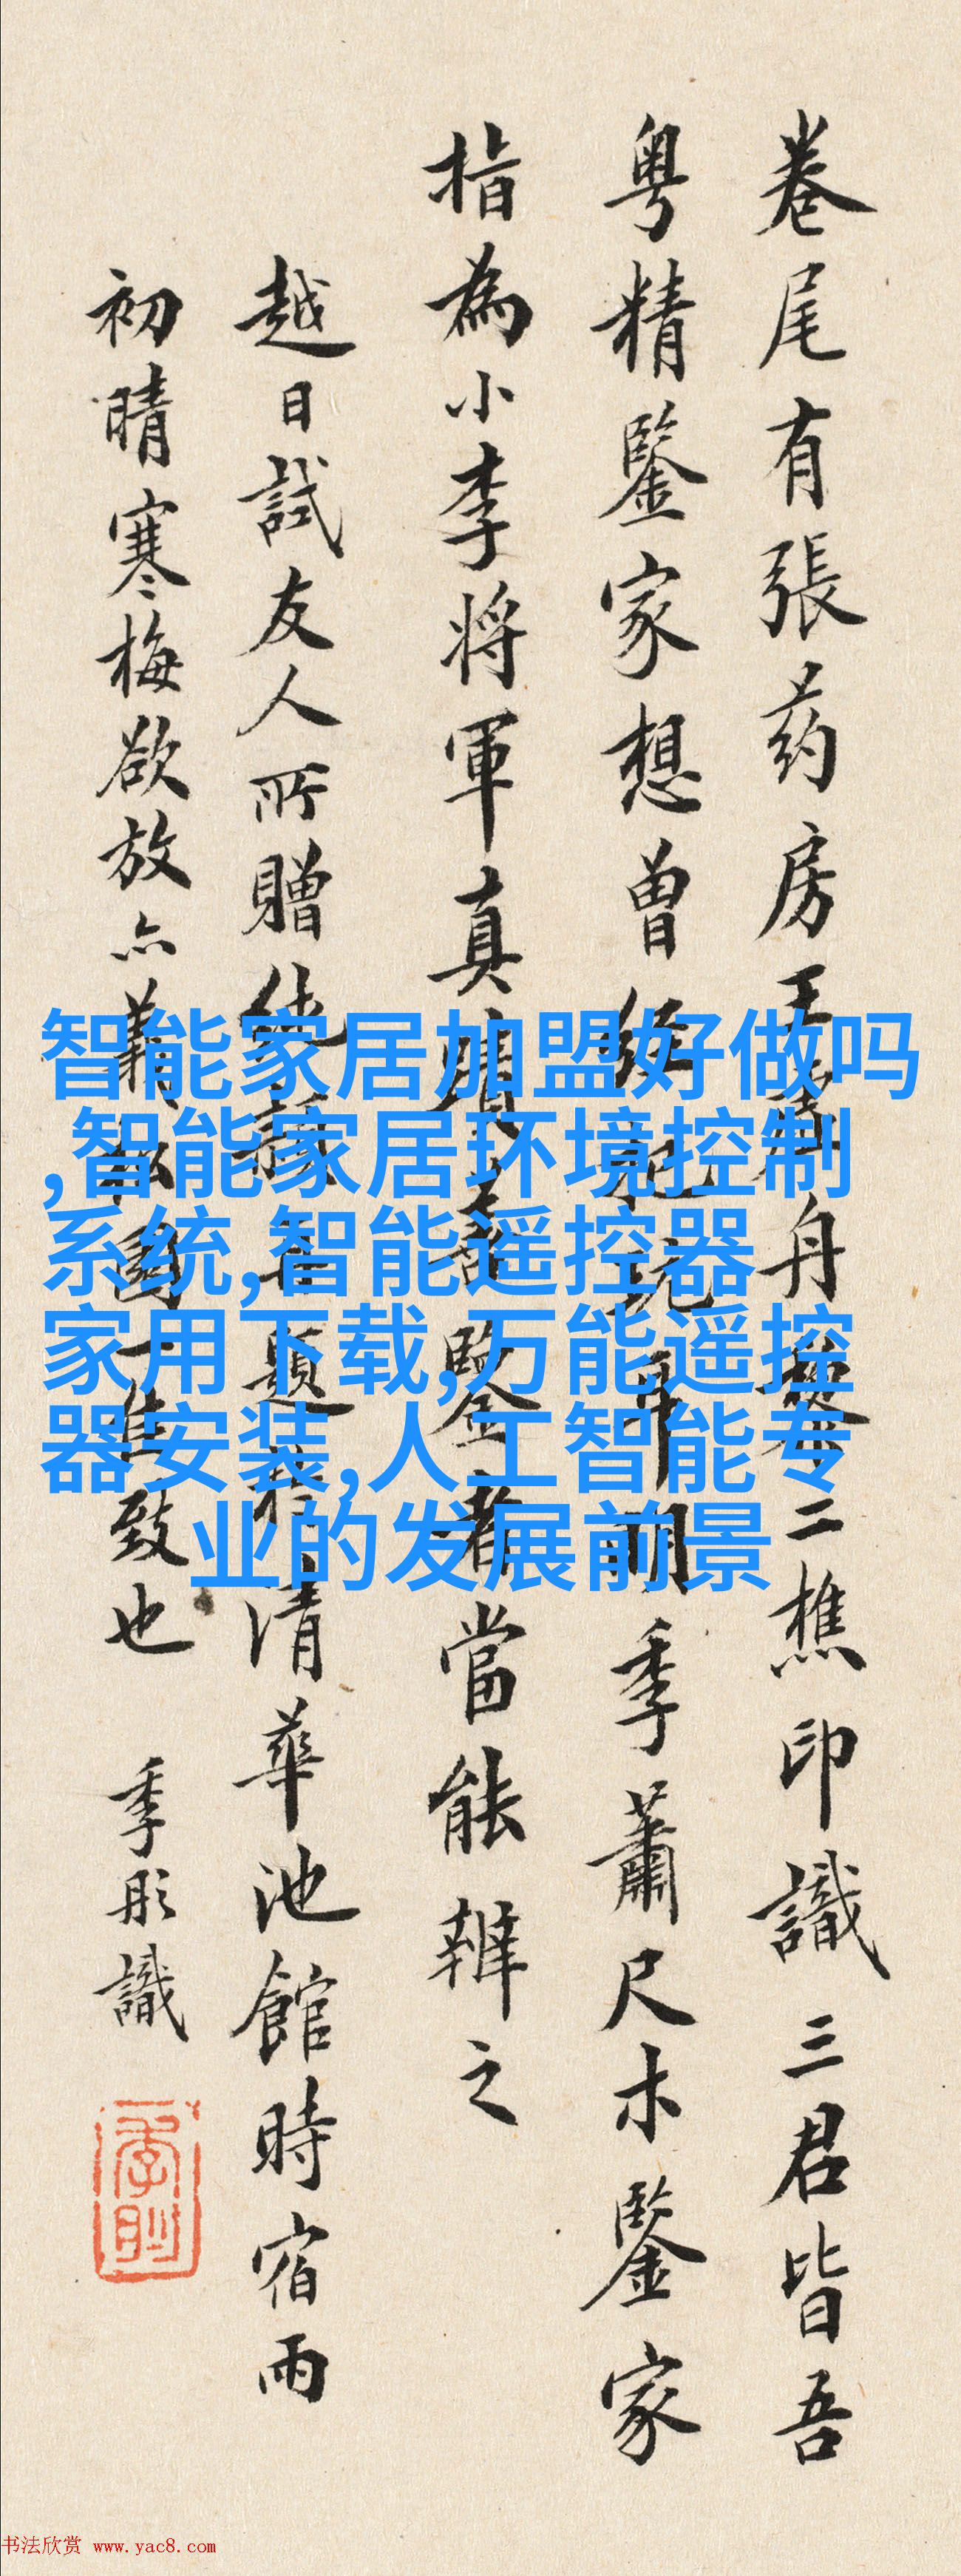 卷尾有張药房王舟黎二樵印識三君皆吾
粤精鑒家想曾經明季蕭尺木鑒家
指為小李將軍真鑒者當能辨之
越日試友人所贈題清華池館時宿雨
初晴寒梅欲放亦一佳致也 季彤識
智能家居加盟好做吗
,智能家居环境控制
系统,智能遥控器
家用下载,万能遥控
器安装,人工智能专
业的发展前景
书法欣赏 www.yac8.com